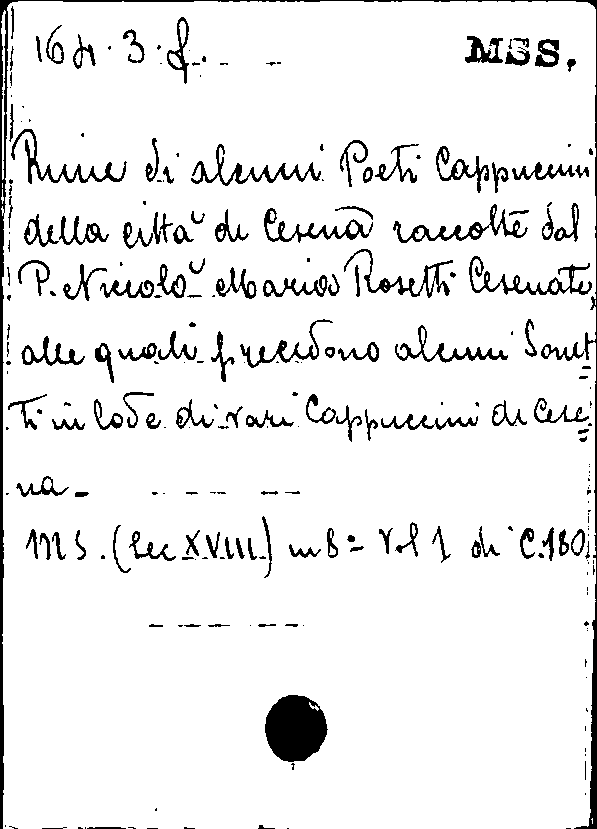 164. 3. f. MSS.
Rime di alcuni Poeti Cappuccini
della città di Cesena raccolte dal
P. Niccolò Maria Rosetti Cesenate,
alle quali precedono alcuni Sonet=
ti in lode di vari Cappuccini di Cese=
na_
MS. (Sec XVIII) in 8º Vol 1 di C.180